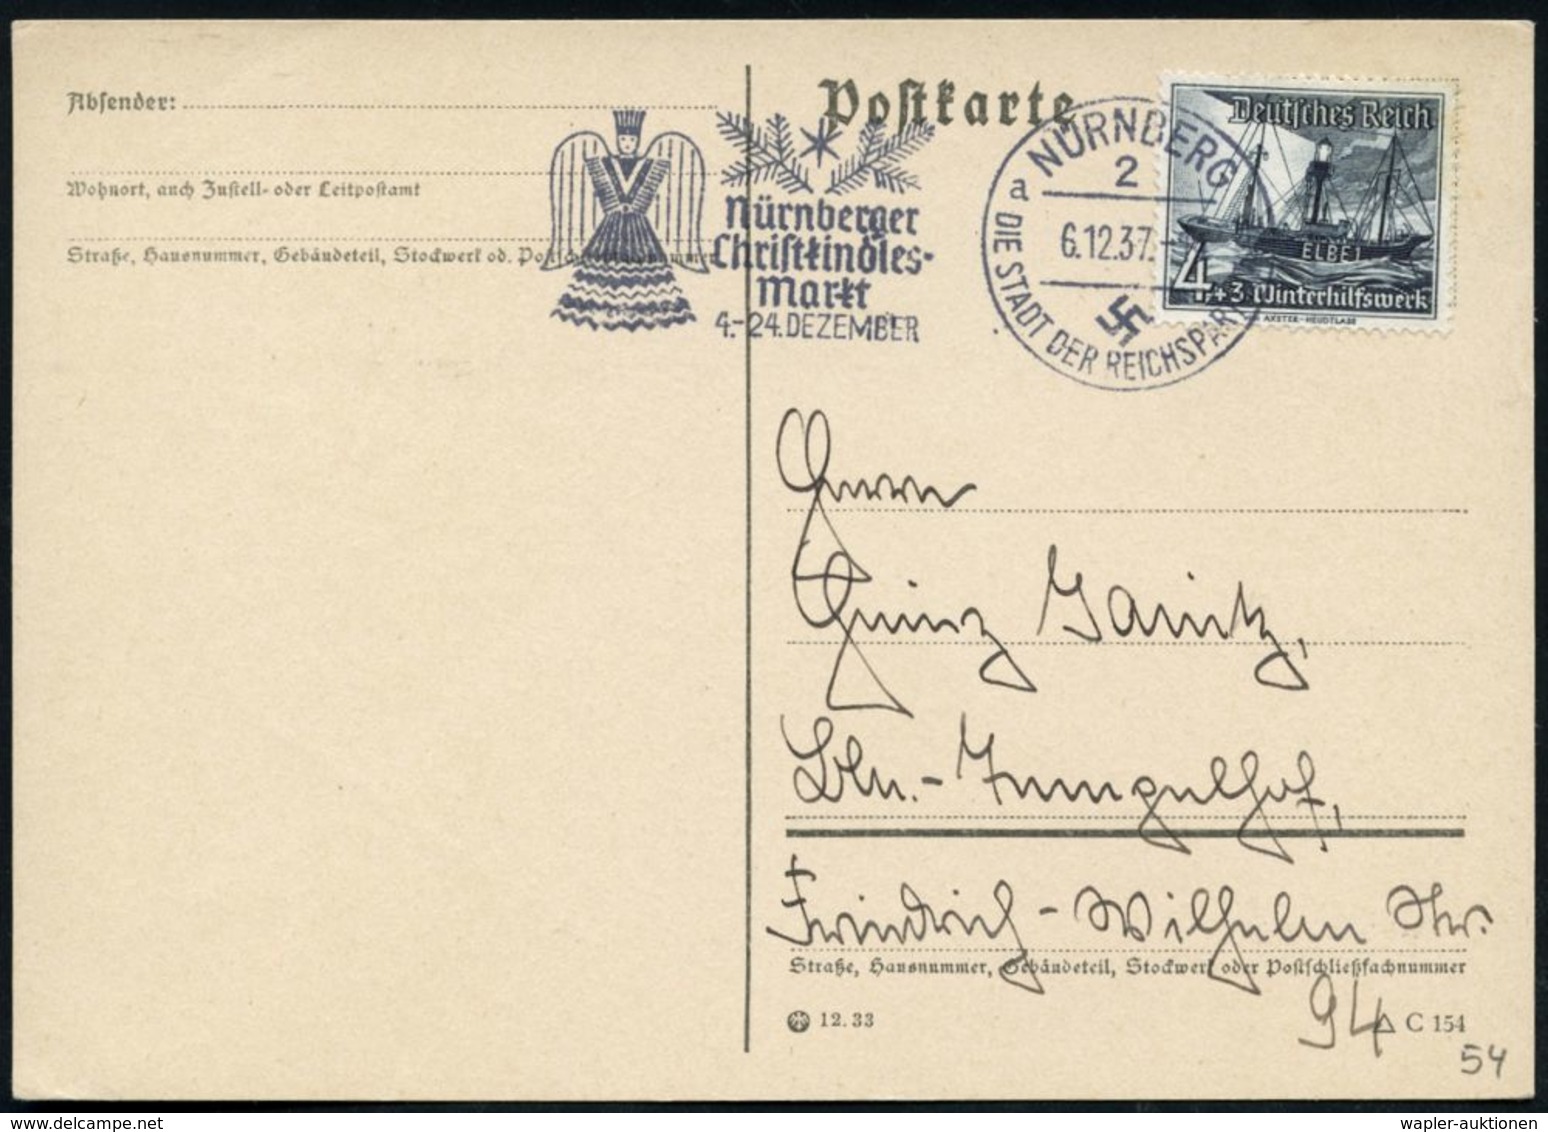 Absender:
Wohnort, auch Zustell- oder Leitpostamt
Straße, Hausnummer, Gebäudeteil, Stockwerk od. Postschließfachnummer
Postkarte
Nürnberger
Christkindles-
Markt
4.-24. DEZEMBER
NÜRNBERG
2
a
6.12.37.
DIE STADT DER REICHSPART
Deutsches Reich
ELBE 1
4+3 Winterhilfswerk
AXSTER-HEUDTLASS
Herrn
Heinz Janitz,
Bln.-Tempelhof,
Friedrich-Wilhelm Str.
Straße, Hausnummer, Gebäudeteil, Stockwerk oder Postschließfachnummer
94
12. 33
C 154
54
wapler-auktionen